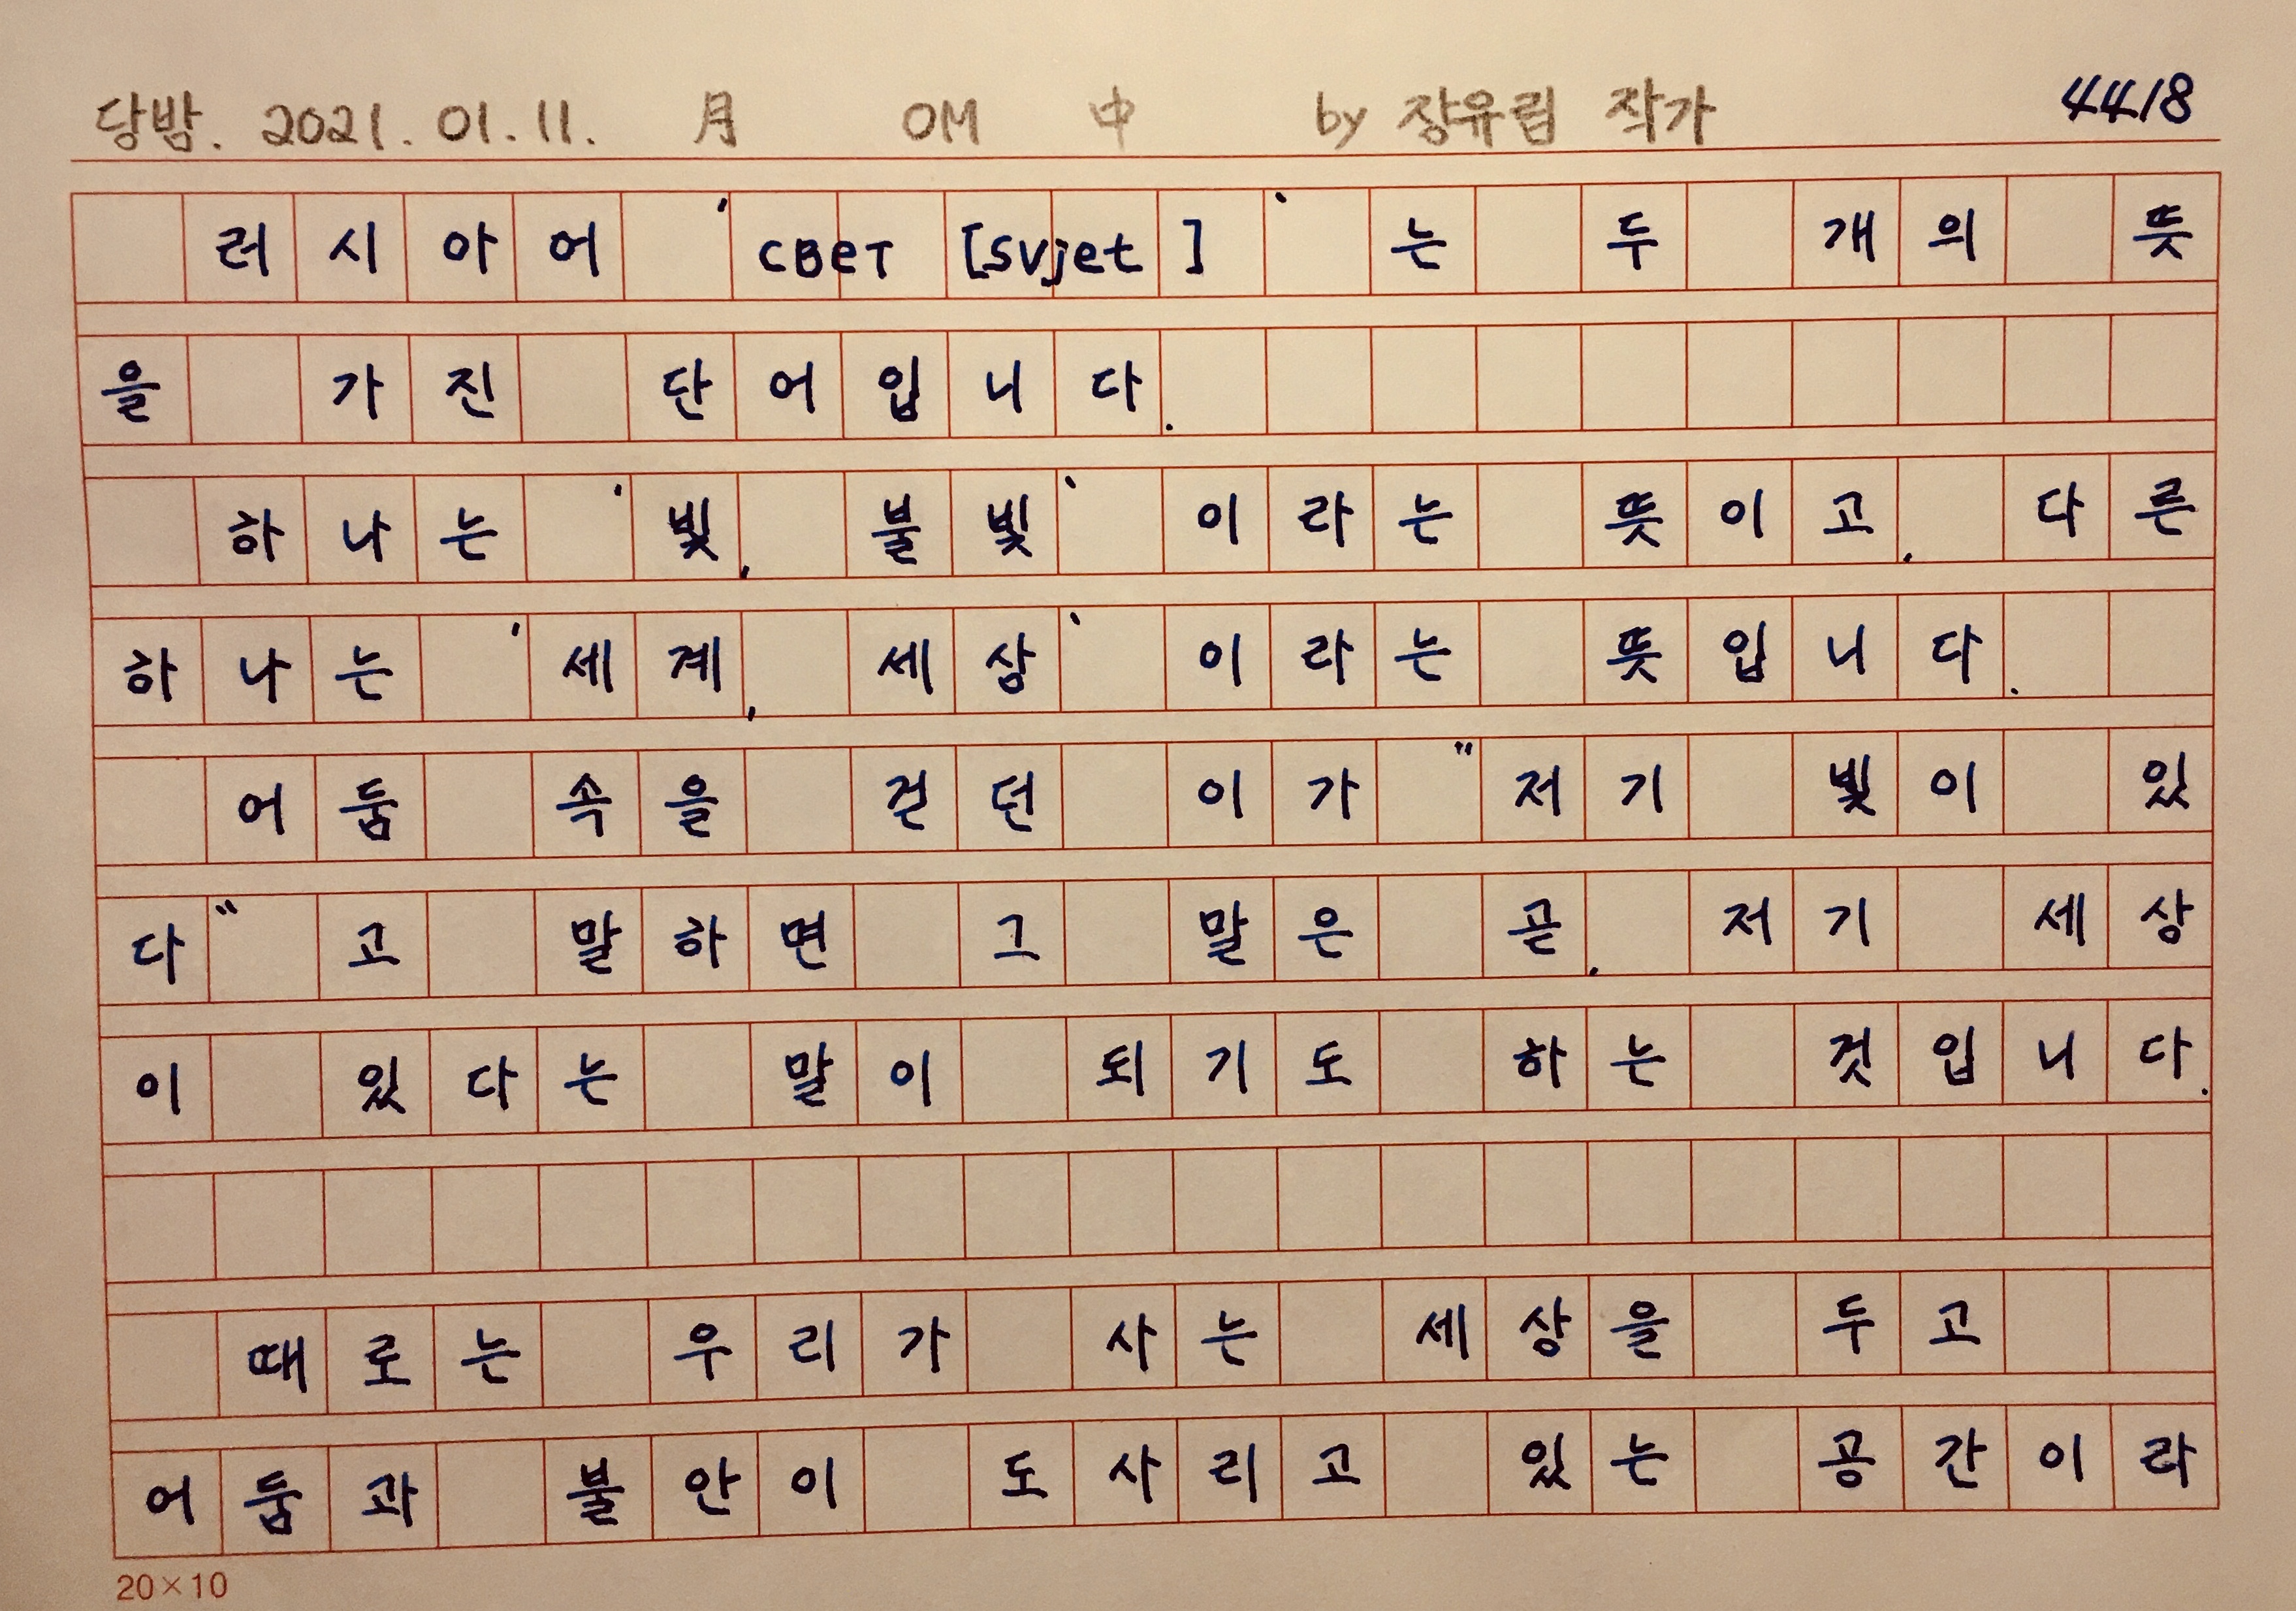 당밤. 2021. 01. 11. 月 OM 中 by 장유림 작가 44/8
러시아어 'свет [svjet]'는 두 개의 뜻
을 가진 단어입니다.
하나는 '빛, 불빛'이라는 뜻이고, 다른
하나는 '세계, 세상'이라는 뜻입니다.
어둠 속을 걷던 이가 "저기 빛이 있
다"고 말하면 그 말은 곧, 저기 세상
이 있다는 말이 되기도 하는 것입니다.
때로는 우리가 사는 세상을 두고
어둠과 불안이 도사리고 있는 공간이라
20×10